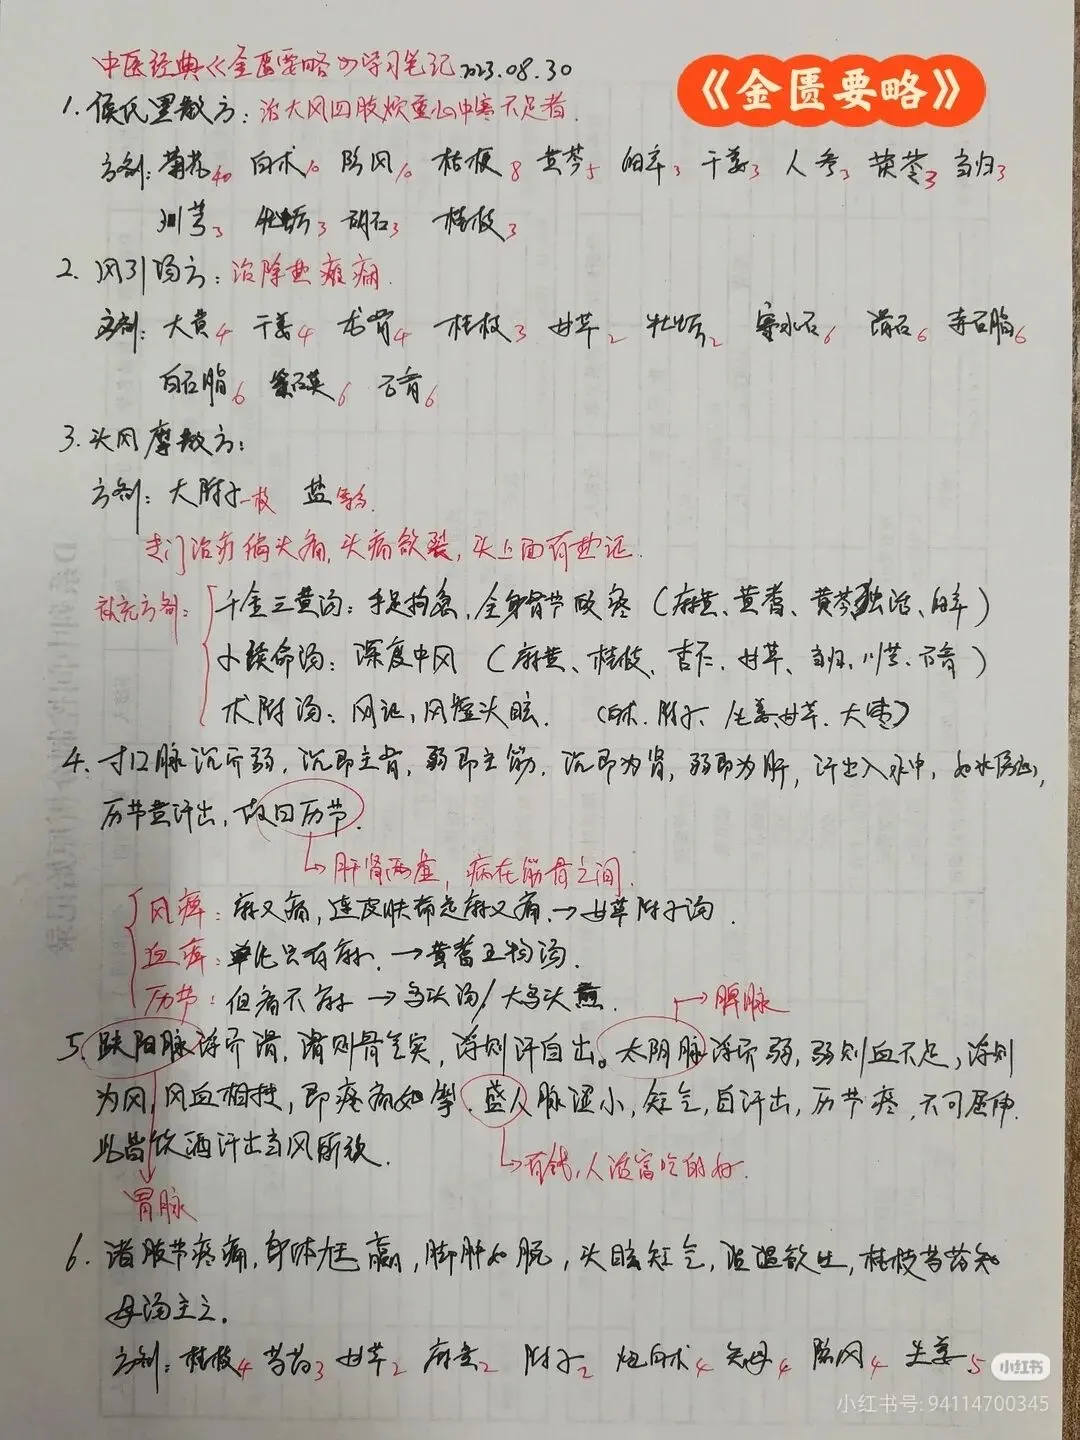 中医经典《金匮要略》学习笔记 2023.08.30
《金匮要略》
1. 侯氏黑散方：治大风四肢烦重心中寒不足者.
方剂：菊花40 白术10 防风10 桔梗8 黄芩5 细辛3 干姜3 人参3 茯苓3 当归3
川芎3 牡蛎3 矾石3 桂枝3
2. 风引汤方：治除热瘫痫.
方剂：大黄4 干姜4 龙骨4 桂枝3 甘草2 牡蛎2 寒水石6 滑石6 赤石脂6
白石脂6 紫石英6 石膏6
3. 头风摩散方：
方剂：大附子一枚 盐等份.
专门治疗偏头痛，头痛欲裂，头上面有热证.
补充方剂：
千金三黄汤：手足拘急，全身骨节酸疼（麻黄、黄耆、黄芩、独活、细辛）
小续命汤：深度中风（麻黄、桂枝、杏仁、甘草、当归、川芎、石膏）
术附汤：风证，风痙头眩.（白术、附子、生姜、甘草、大枣）
4. 寸口脉沉而弱，沉即主骨，弱即主筋，沉即为肾，弱即为肝，汗出入水中，如水伤心，
历节黄汗出，故曰历节.
肝肾两虚，病在筋骨之间.
风痹：麻又痛，连皮肤都是麻又痛.→甘草附子汤.
血痹：单纯只有麻.→黄耆五物汤.
历节：但痛不麻→乌头汤/大乌头煎.
→脾脉
5. 趺阳脉浮而滑，滑则骨气实，浮则汗自出。太阴脉浮而弱，弱则血不足，浮则
为风，风血相抟，即疼痛如掣.盛人脉涩小，短气，自汗出，历节疼，不可屈伸.
此皆饮酒汗出当风所致.
有钱，人活富吃的好.
胃脉
6. 诸肢节疼痛，身体尪羸，脚肿如脱，头眩短气，温温欲吐，桂枝芍药知
母汤主之.
方剂：桂枝4 芍药3 甘草2 麻黄2 附子2 炮白术4 知母4 防风4 生姜5
小红书
小红书号: 94114700345